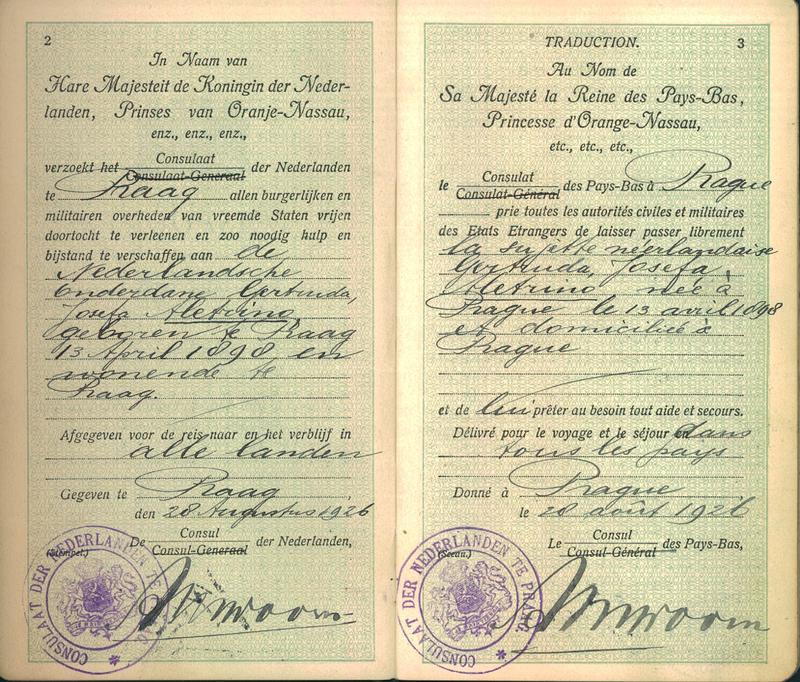 2
In Naam van
Hare Majesteit de Koningin der Neder-
landen, Prinses van Oranje-Nassau,
enz., enz., enz.,
verzoekt het Consulaat der Nederlanden
Consulaat-Generaal
te Praag allen burgerlijken en
militairen overheden van vreemde Staten vrijen
doortocht te verleenen en zoo noodig hulp en
bijstand te verschaffen aan de
Nederlandsche
Onderdane Gertruda,
Josefa Aletrino,
geboren te Praag
13 April 1898, en
wonende te
Praag.
Afgegeven voor de reis naar en het verblijf in
alle landen
Gegeven te Praag,
den 28 Augustus 1926
De Consul der Nederlanden,
Consul-Generaal
(Stempel.)
CONSULAAT DER NEDERLANDEN TE
TRADUCTION.
3
Au Nom de
Sa Majesté la Reine des Pays-Bas,
Princesse d'Orange-Nassau,
etc., etc., etc.,
le Consulat des Pays-Bas à Prague
Consulat-Général
prie toutes les autorités civiles et militaires
des Etats Etrangers de laisser passer librement
la sujette néerlandaise
Gertruda, Josefa,
Aletrino née à
Prague le 13 avril 1898
et domiciliée à
Prague
et de lui prêter au besoin tout aide et secours.
Délivré pour le voyage et le séjour en dans
tous les pays
Donné à Prague
le 28 août 1926
Le Consul des Pays-Bas,
Consul-Général
(Sceau.)
CONSULAAT DER NEDERLANDEN TE PRAAG